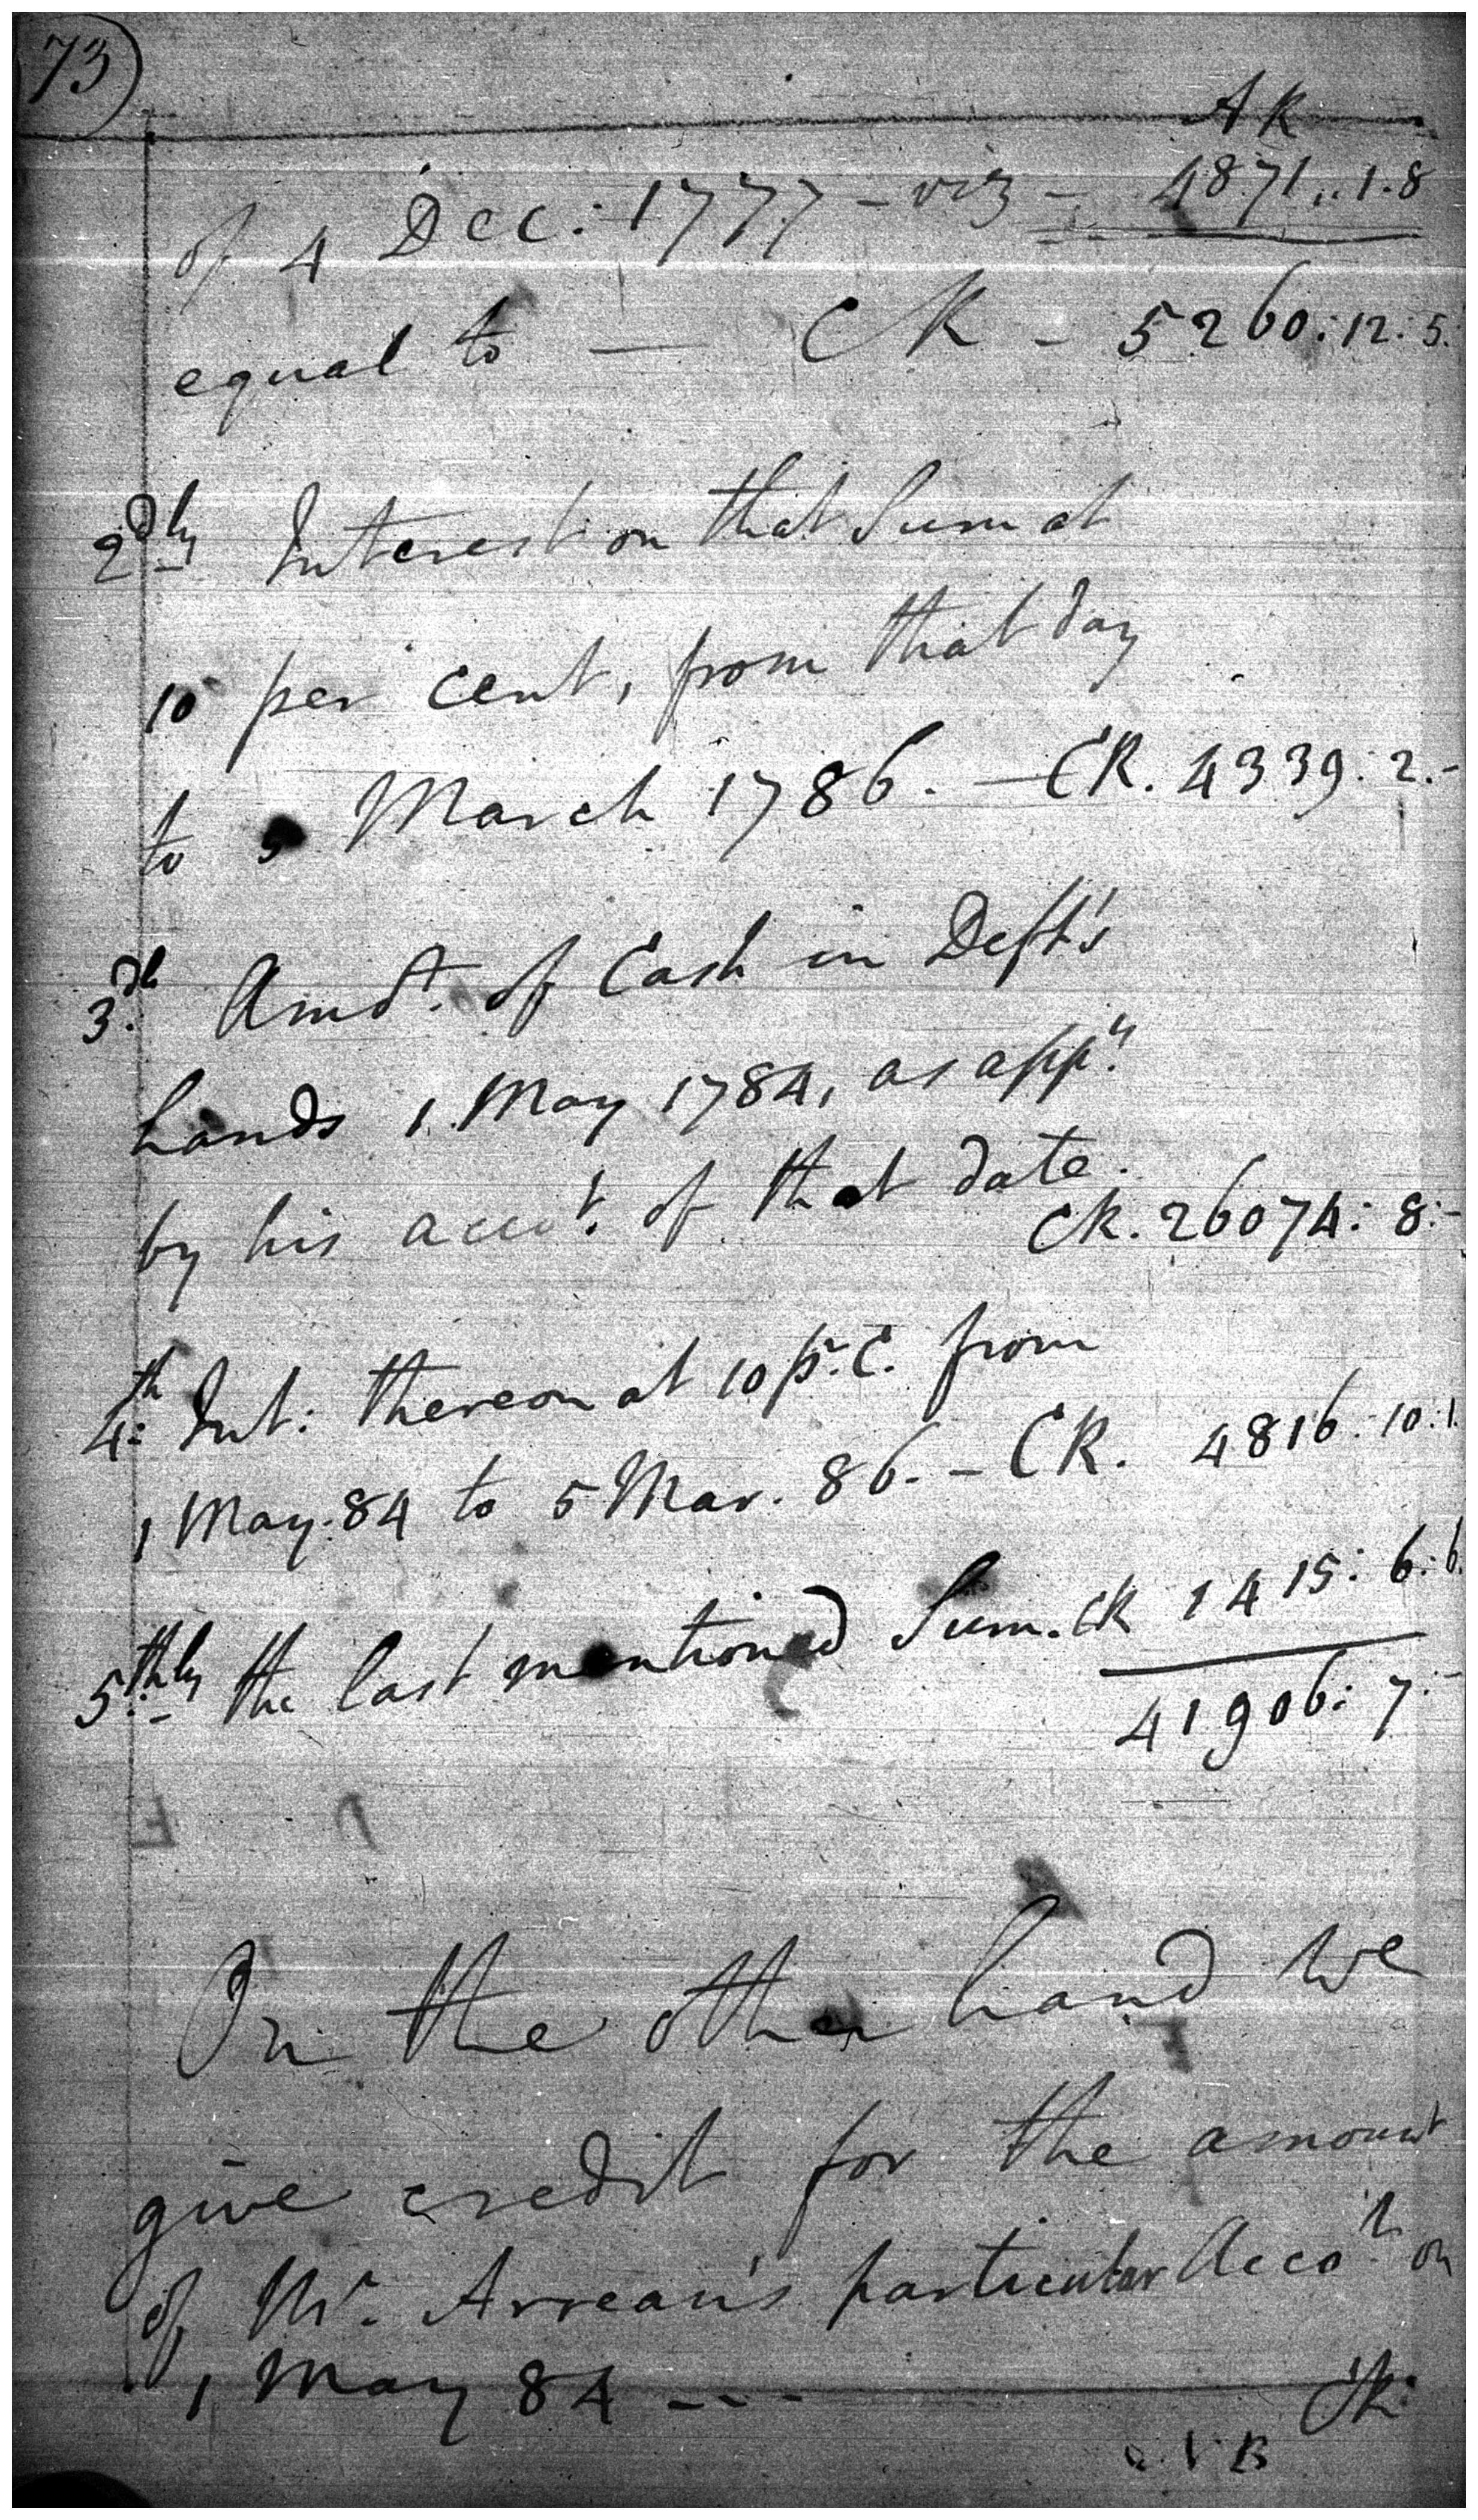 73
AR
of 4 Dec: 1777 - viz - 4871..1.8
equal to — CR - 5260:12:5.
2dly Interest on that Sum at
10 per cent, from that day
to 5 March 1786. — CR. 4339:2.-
3d. Amot. of Cash in Deft's
hands 1 May 1784, as app.s
by his accot. of that date.
CR. 26074:8:-
4th: Int: thereon at 10 pr. C. from
1 May. 84 to 5 Mar. 86. - CR. 4816:10:1.
5thly the last mentioned Sum. CR 1415:6:6.
41906:7:-
On the other hand we
give credit for the amount
of Mr. Arrean's particular Acco.t on
1 May 84 - - - CR: